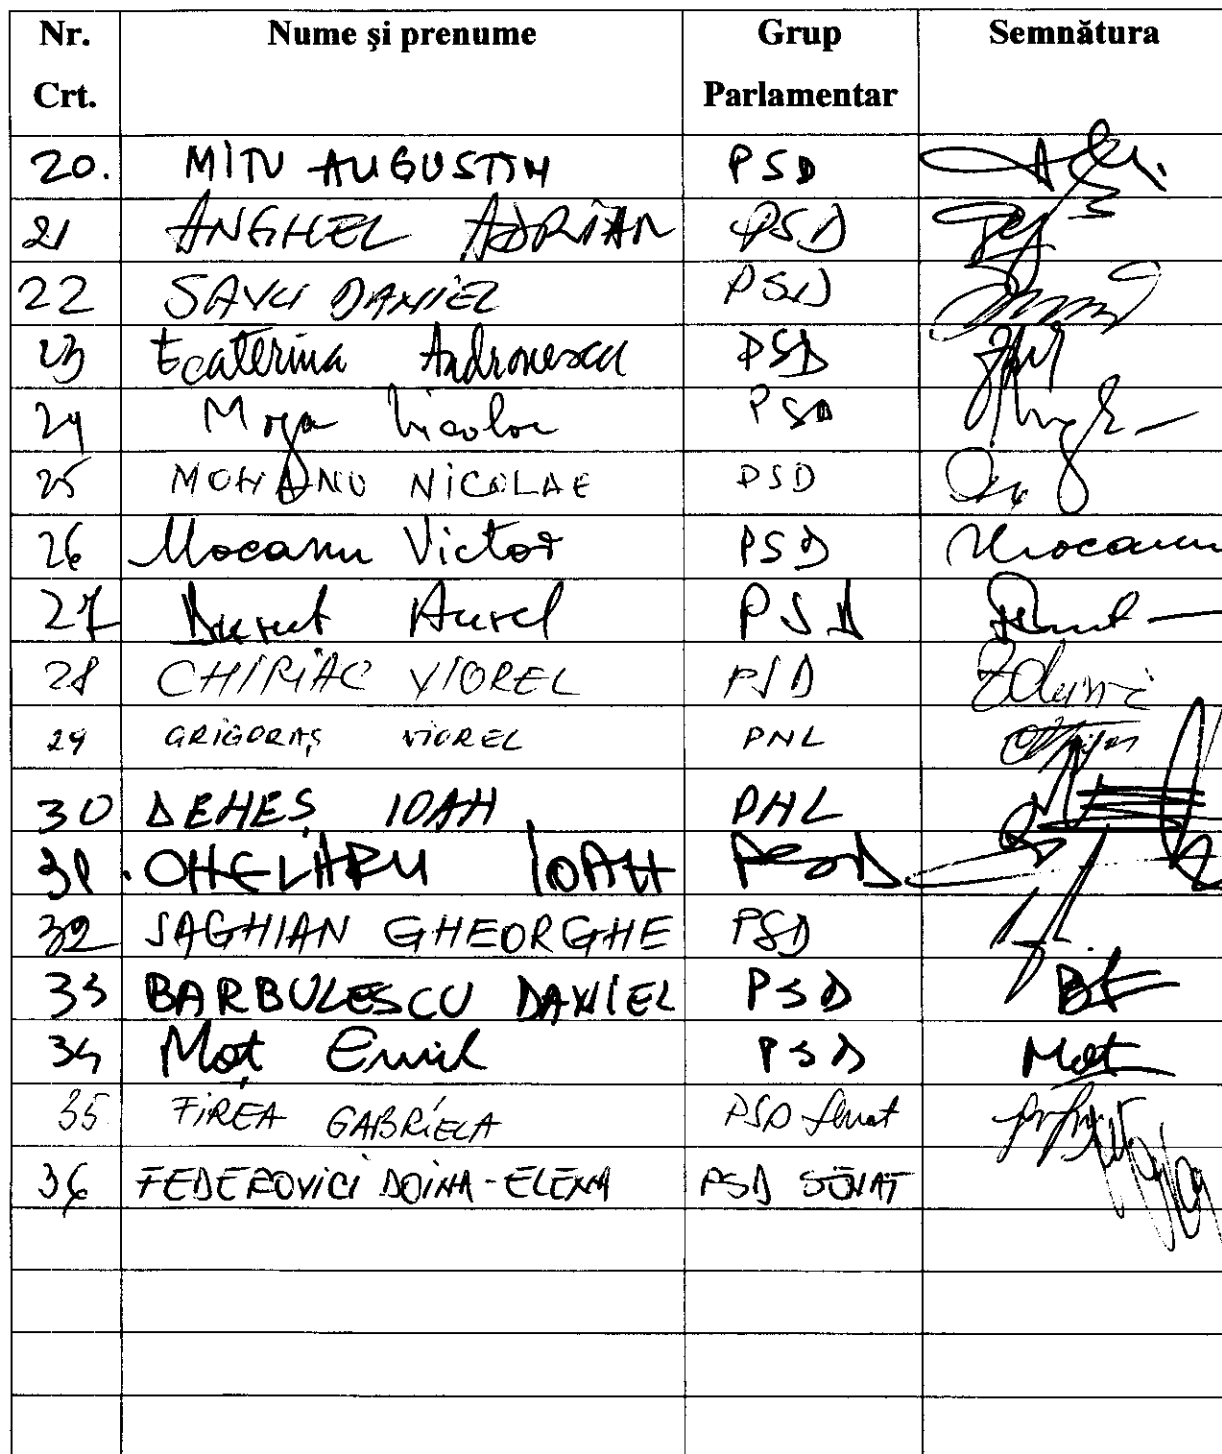 Nr. Crt. Nume şi prenume Grup Parlamentar Semnătura
20. MITU AUGUSTIN PSD
21 ANGHEL ADRIAN PSD
22 SAVU DANIEL PSD
23 Ecaterina Andronescu PSD
24 Moga Nicolae PSD
25 MOHANU NICOLAE PSD
26 Mocanu Victor PSD Mocanu
27 Durut Aurel PSD
28 CHIRIAC VIOREL PSD
29 GRIGORAŞ VIOREL PNL
30 DENEŞ IOAN PNL
31. CHELARU IOAN PSD
32 SAGHIAN GHEORGHE PSD
33 BARBULESCU DANIEL PSD
34 Moţ Emil PSD Moţ
35 FIREA GABRIELA PSD Senat
36 FEDEROVICI DOINA-ELENA PSD SENAT